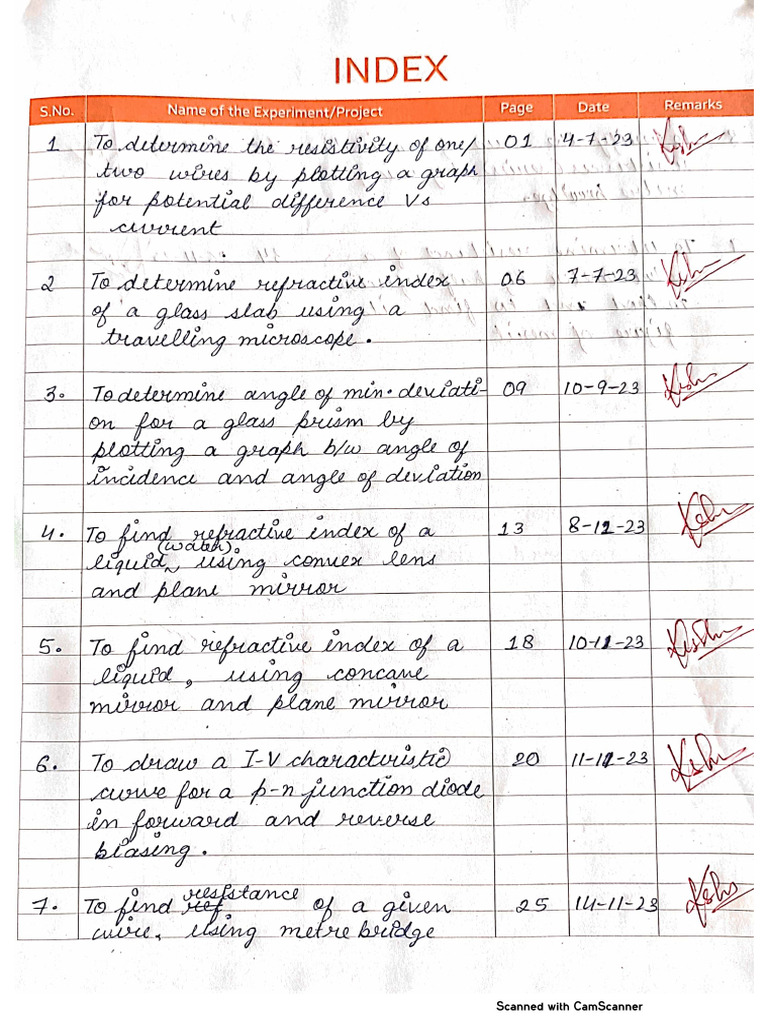 INDEX
S.No. Name of the Experiment/Project Page Date Remarks
1 To determine the resistivity of one/ 01 4-7-23
two wires by plotting a graph
for potential difference Vs
current
2 To determine refractive index 06 7-7-23
of a glass slab using a
travelling microscope.
3. To determine angle of min. deviati- 09 10-9-23
on for a glass prism by
plotting a graph b/w angle of
incidence and angle of deviation
4. To find refractive index of a 13 8-11-23
(water)
liquid, using convex lens
and plane mirror
5. To find refractive index of a 18 10-11-23
liquid, using concave
mirror and plane mirror
6. To draw a I-V characteristic 20 11-11-23
curve for a p-n junction diode
in forward and reverse
biasing.
resistance
7. To find ref of a given 25 14-11-23
wire, using metre bridge
Scanned with CamScanner